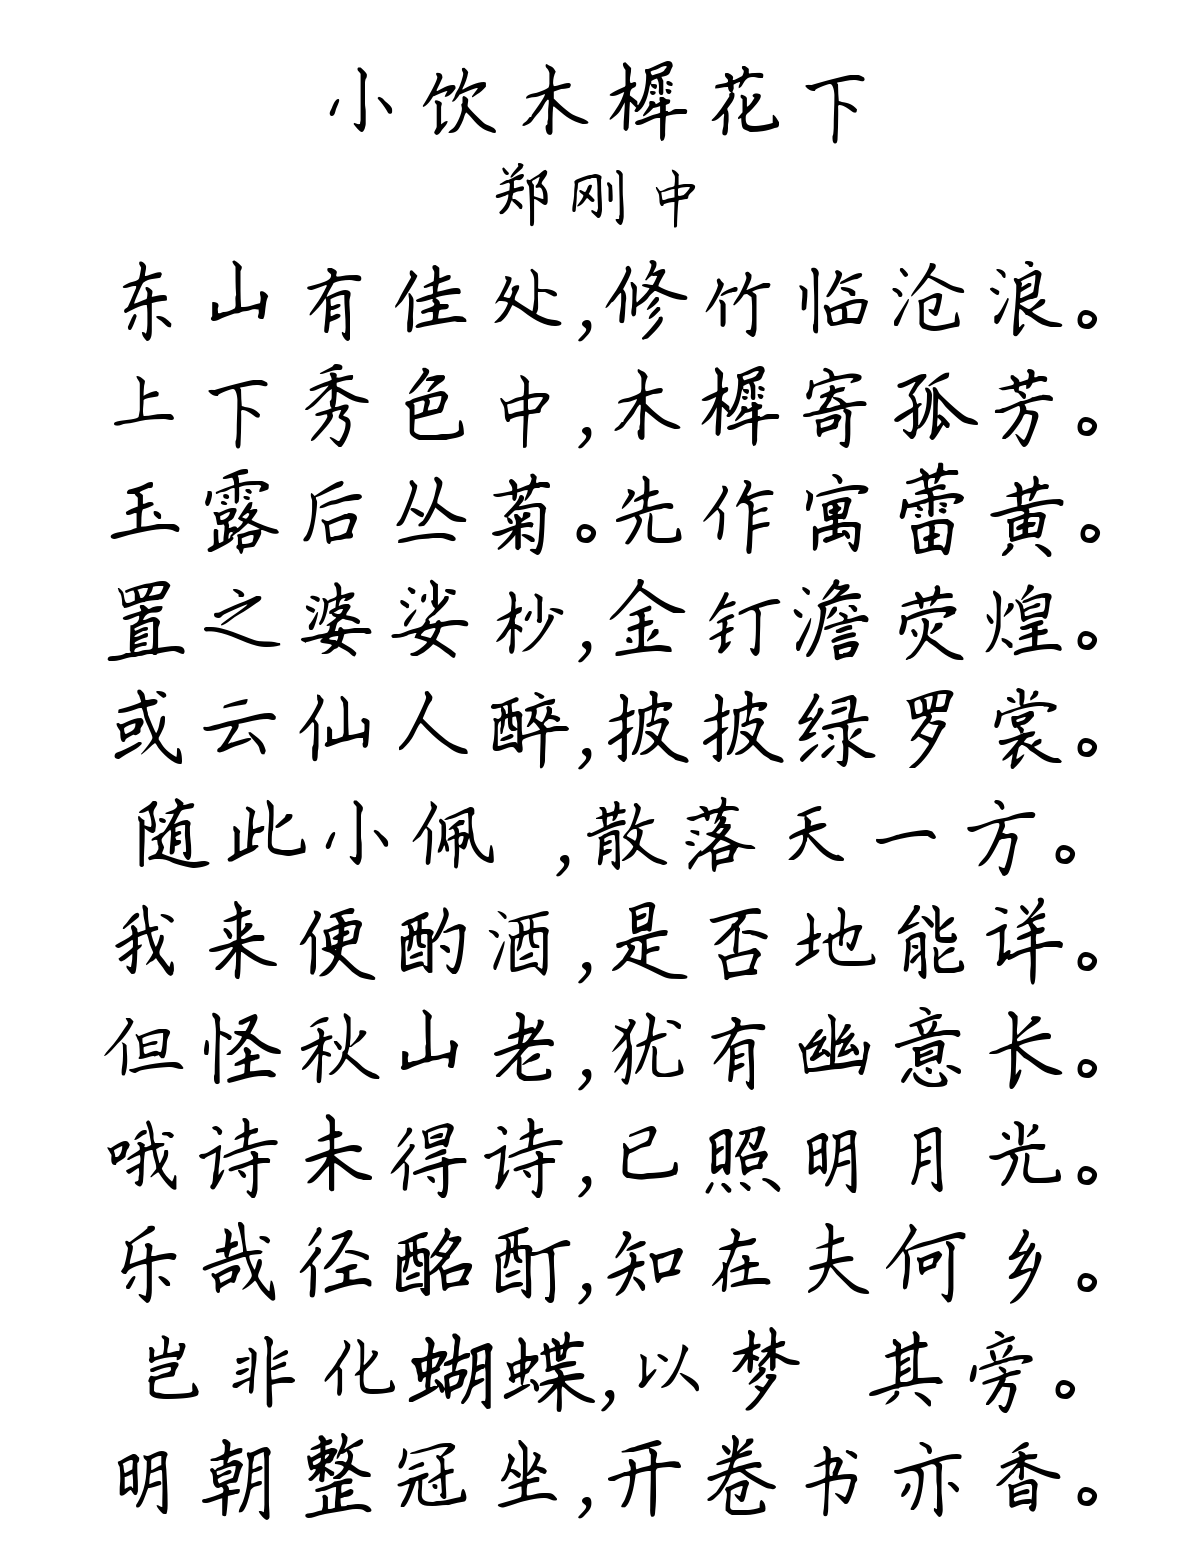 小饮木樨花下
郑刚中
东山有佳处,修竹临沧浪。
上下秀色中,木樨寄孤芳。
玉露后丛菊。先作寓蕾黄。
置之婆娑杪,金钉澹荧煌。
或云仙人醉,披披绿罗裳。
随此小佩 ,散落天一方。
我来便酌酒,是否地能详。
但怪秋山老,犹有幽意长。
哦诗未得诗,已照明月光。
乐哉径酩酊,知在夫何乡。
岂非化蝴蝶,以梦 其旁。
明朝整冠坐,开卷书亦香。